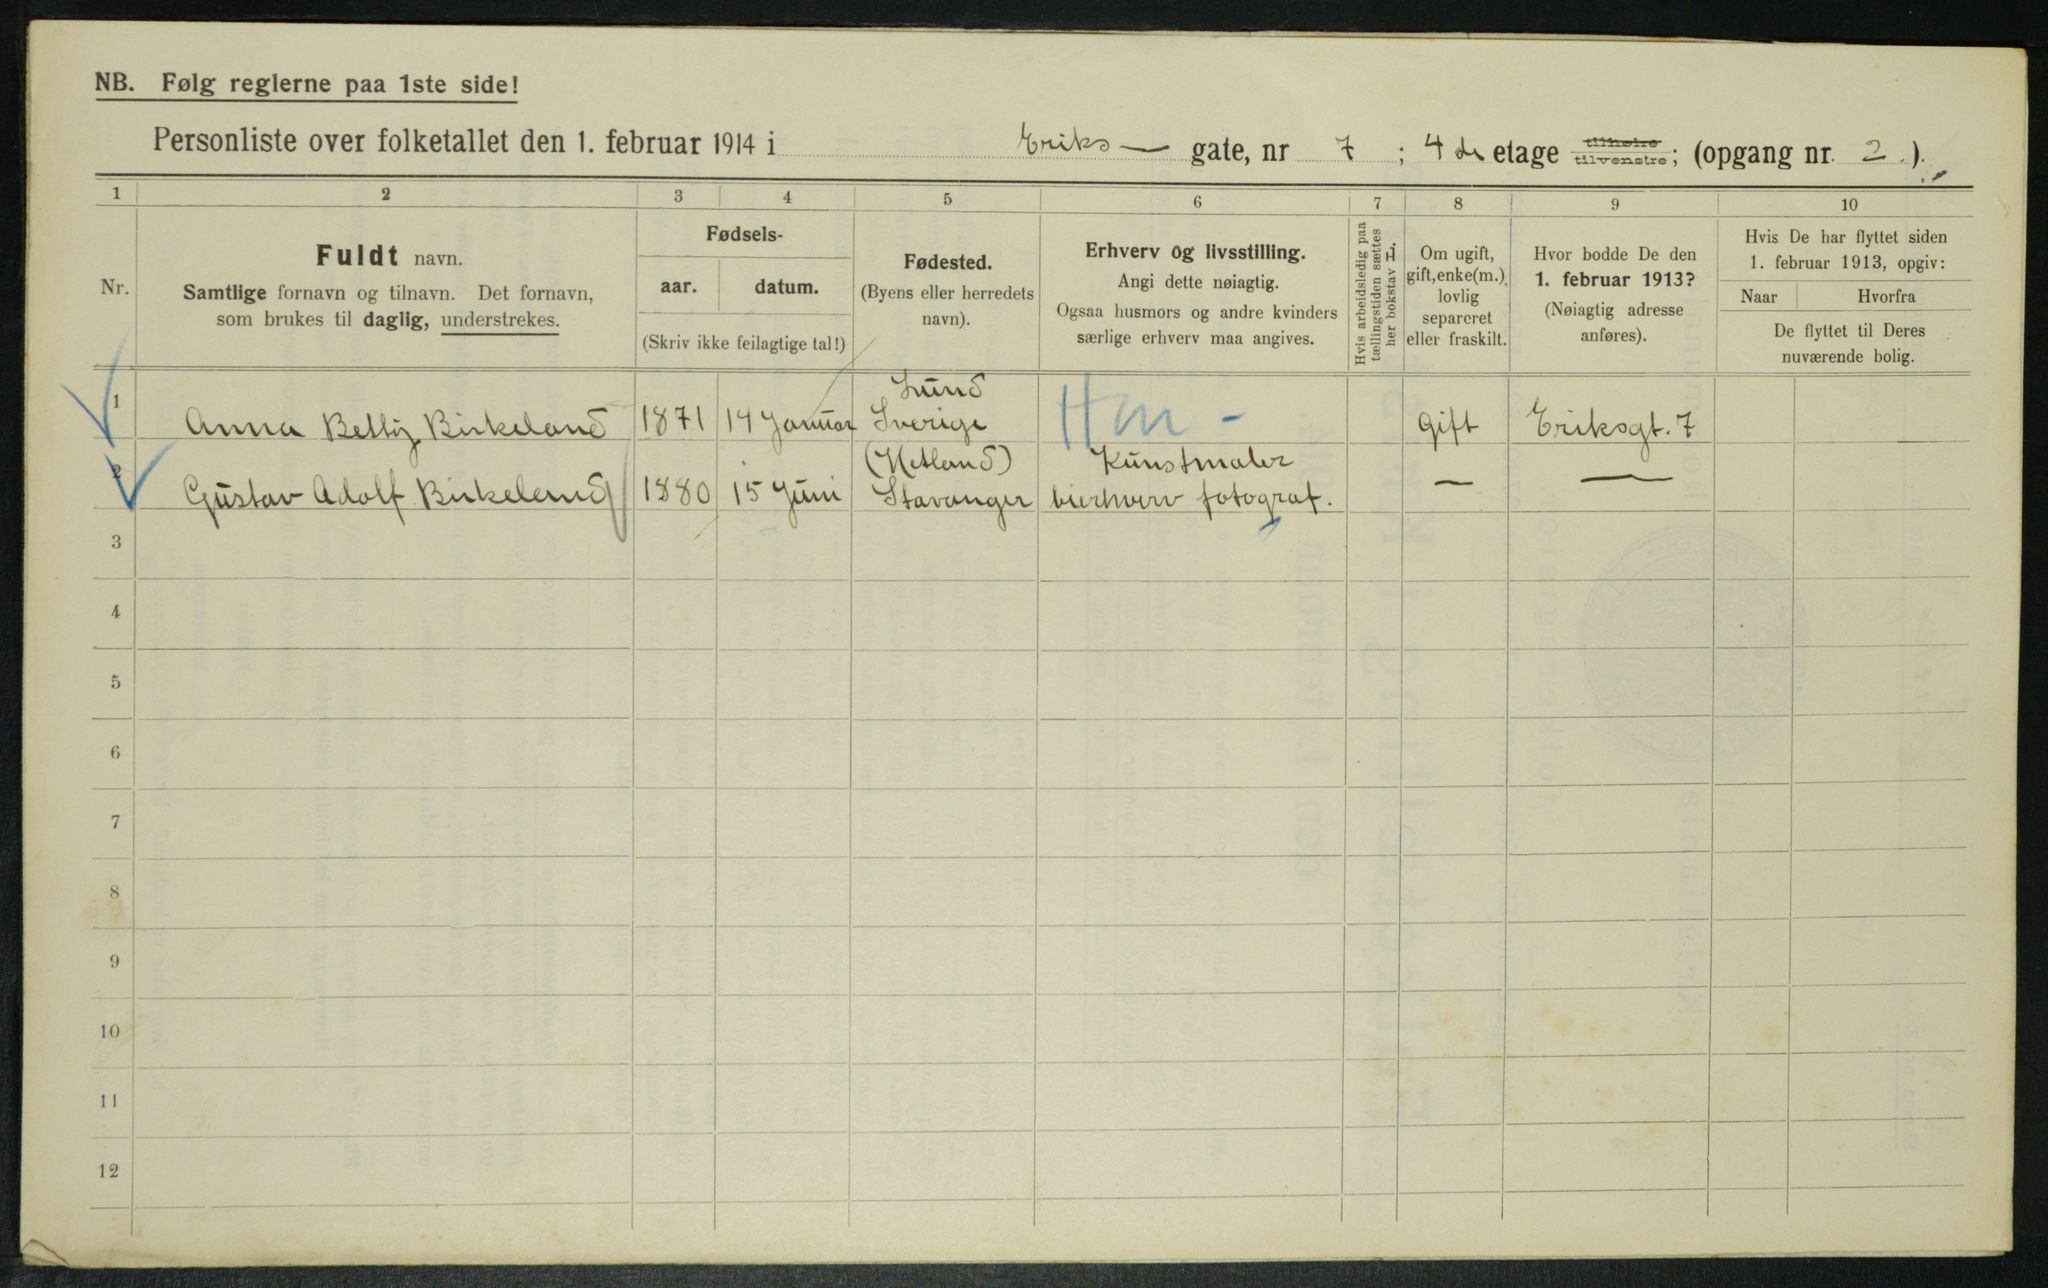 NB. Følg reglerne paa 1ste side!
Personliste over folketallet den 1. februar 1914 i Eriks — gate, nr 7 ; 4 de etage tilhøire tilvenstre; (opgang nr. 2.).
1 2 3 4 5 6 7 8 9 10
Nr.
Fuldt navn.
Samtlige fornavn og tilnavn. Det fornavn,
som brukes til daglig, understrekes.
Fødsels-
aar. datum.
(Skriv ikke feilagtige tal!)
Fødested.
(Byens eller herredets
navn).
Erhverv og livsstilling.
Angi dette nøiagtig.
Ogsaa husmors og andre kvinders
særlige erhverv maa angives.
Hvis arbeidsledig paa
tællingstiden sættes
her bokstav L.
Om ugift,
gift, enke(m.),
lovlig
separeret
eller fraskilt.
Hvor bodde De den
1. februar 1913?
(Nøiagtig adresse
anføres).
Hvis De har flyttet siden
1. februar 1913, opgiv:
Naar Hvorfra
De flyttet til Deres
nuværende bolig.
Lund
1 Anna Betty Birkeland 1871 14 Januar Sverige Hm - Gift Eriksgt. 7
(Hetland) Kunstmaler
2 Gustav Adolf Birkeland 1880 15 Juni Stavanger bierhverv fotograf. — —
3
4
5
6
7
8
9
10
11
12